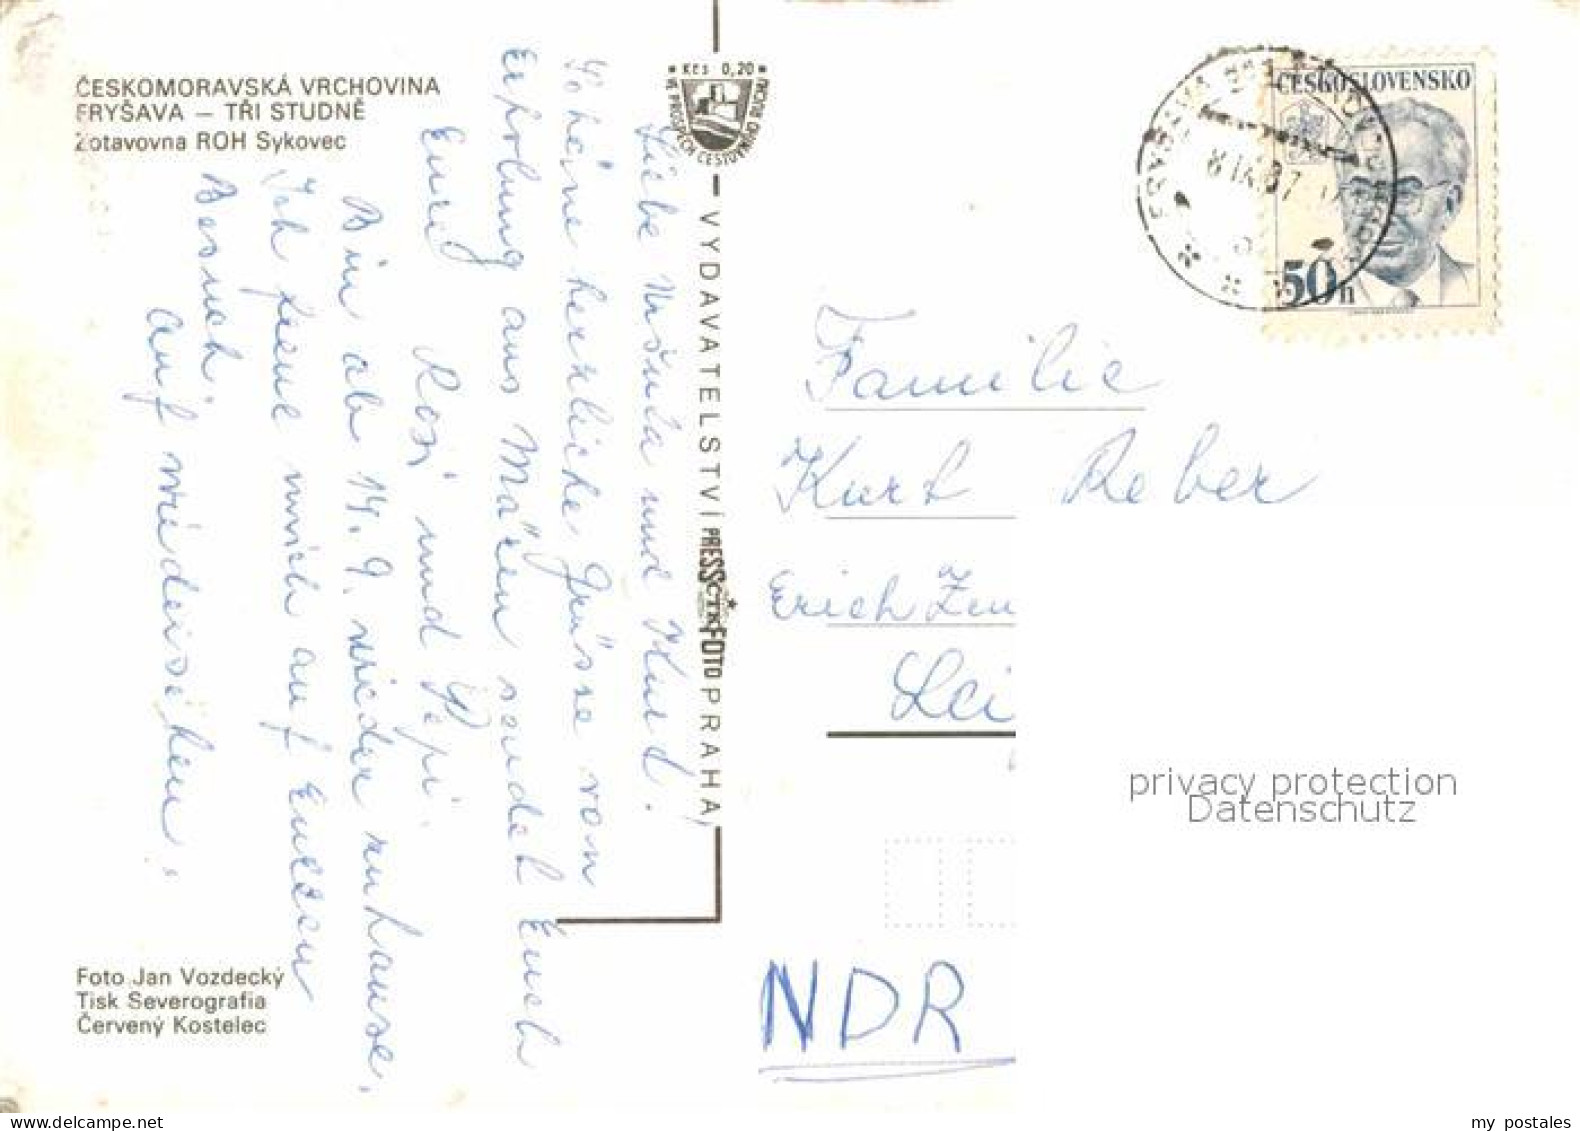 ČESKOMORAVSKÁ VRCHOVINA
FRYŠAVA – TŘI STUDNĚ
Zotavovna ROH Sykovec
Kčs 0,20
VE PROSPĚCH CESTOVNÍHO RUCHU
Liebe Uršula und Kurt.
Schöne herzliche Grüsse von
Erholung aus Mären sendet Euch
Eure
Rosi und Pepi.
Bin ab 14. 9. wieder zuhause.
Ich freue mich auf Eueren
Besuch.
Auf wiedersehen.
VYDAVATELSTVÍ PRESSFOTO PRAHA
ČTK
ČESKOSLOVENSKO
50h
Familie
Kurt Reber
Erich Zeu
Lei
NDR
privacy protection
Datenschutz
Foto Jan Vozdecký
Tisk Severografia
Červený Kostelec
my postales